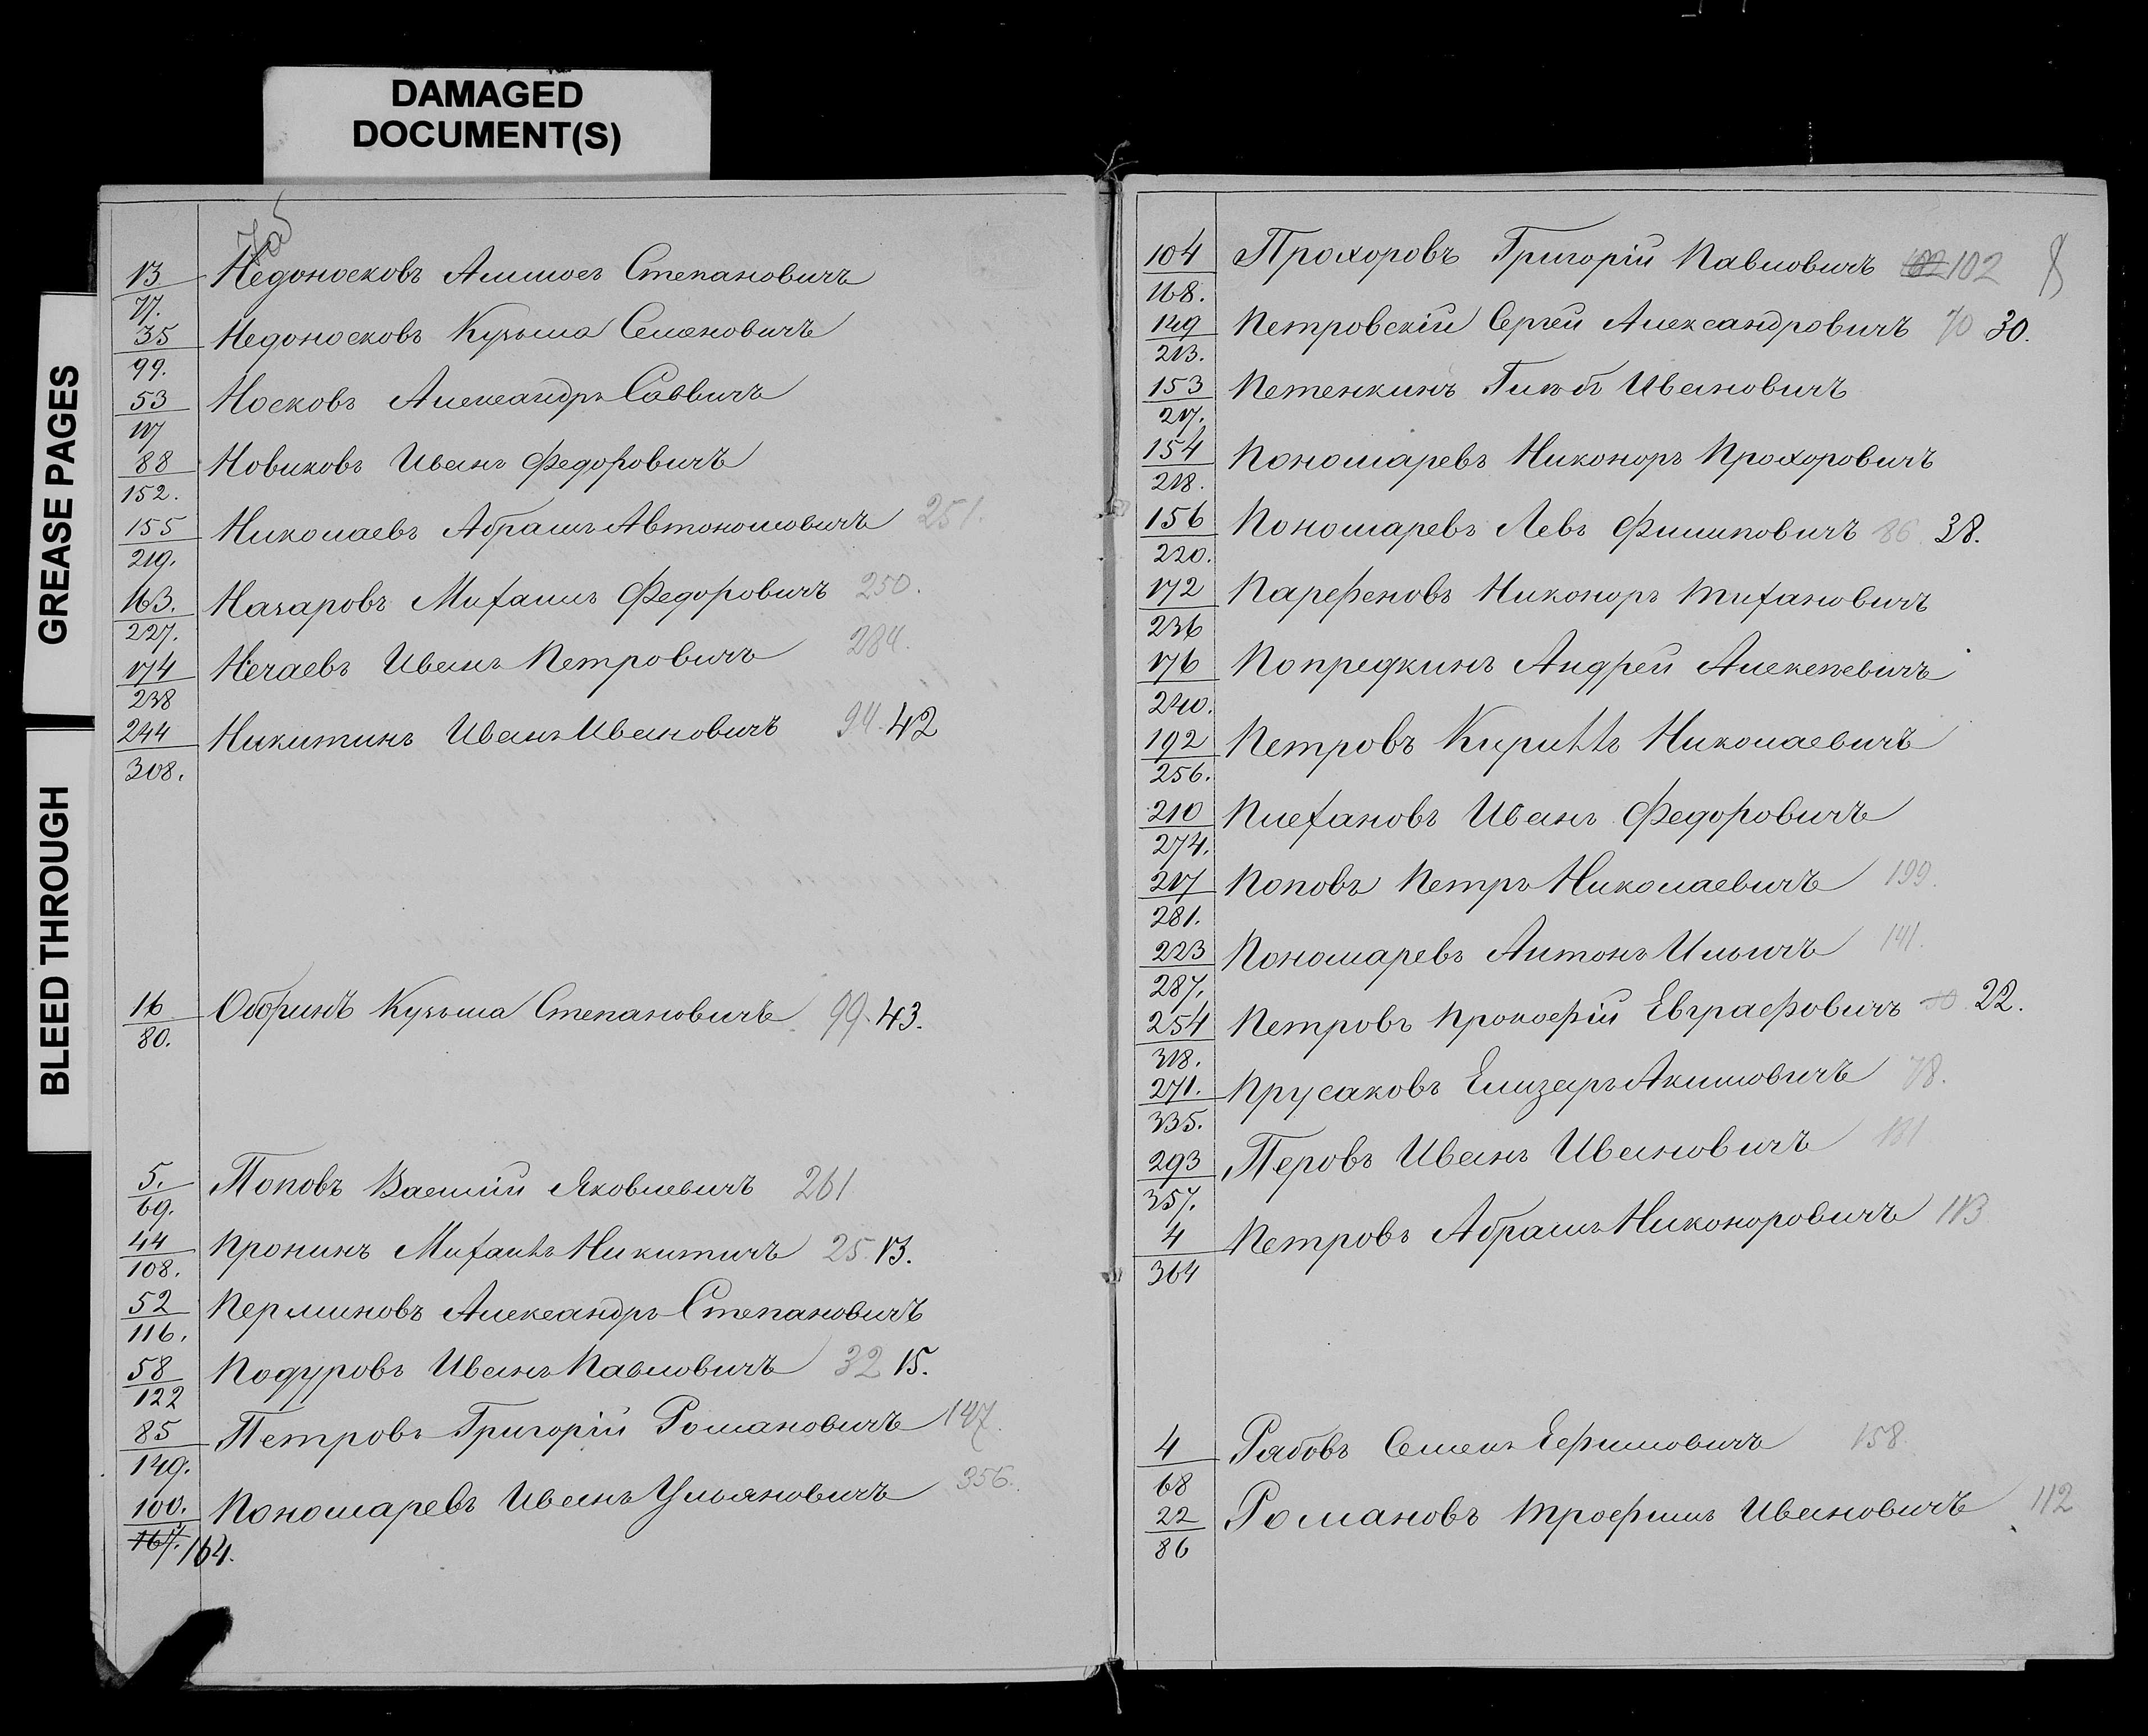 DAMAGED
DOCUMENT(S)
GREASE PAGES
BLEED THROUGH
7об
13/77. Недоносковъ Степановичъ
35/99. Недоносковъ Кузьма Семеновичъ
53/117 Носковъ Александръ Саввичъ
88/152. Новиковъ Иванъ Федоровичъ
155/219. Николаевъ Абрамъ Автономовичъ 251.
163./227. Назаровъ Михаилъ Федоровичъ 250.
174/238 Нечаевъ Иванъ Петровичъ 284.
244/308. Никитинъ Иванъ Ивановичъ 94. 42
16/80. Кузьма Степановичъ 99. 43.
5./69. Поповъ Василій Яковлевичъ 261
44/108. Пронинъ Михаилъ Никитичъ 25. 13.
52/116. Перминовъ Александръ Степановичъ
58/122 Подуровъ Иванъ Павловичъ 32 15.
85/149. Петровъ Григорій Романовичъ 147.
100./164. Пономаревъ Иванъ Ульяновичъ 356.
8
104/168. Прохоровъ Григорій Павловичъ 102
149/213. Петровскій Сергей Александровичъ 70 30.
153/217. Петенкинъ Ивановичъ
154/218. Пономаревъ Никоноръ Прохоровичъ
156/220. Пономаревъ Левъ Филиповичъ 86. 38.
172/236 Парфеновъ Никоноръ Тихановичъ
176/240. Попредкинъ Андрей Алексѣевичъ
192/256. Петровъ Кирилъ Николаевичъ
210/274. Плехановъ Иванъ Федоровичъ
217/281. Поповъ Петръ Николаевичъ 199.
223/287. Пономаревъ Антонъ Ильичъ 141.
254/318. Петровъ Прокофій Евграфовичъ 22.
271./335. Прусаковъ Елизаръ Акимовичъ 78.
293/357. Перовъ Иванъ Ивановичъ 131
4/364 Петровъ Абрамъ Никоноровичъ 113
4/68 Рябовъ Семенъ Ефимовичъ 158.
22/86 Романовъ Трофимъ Ивановичъ 112